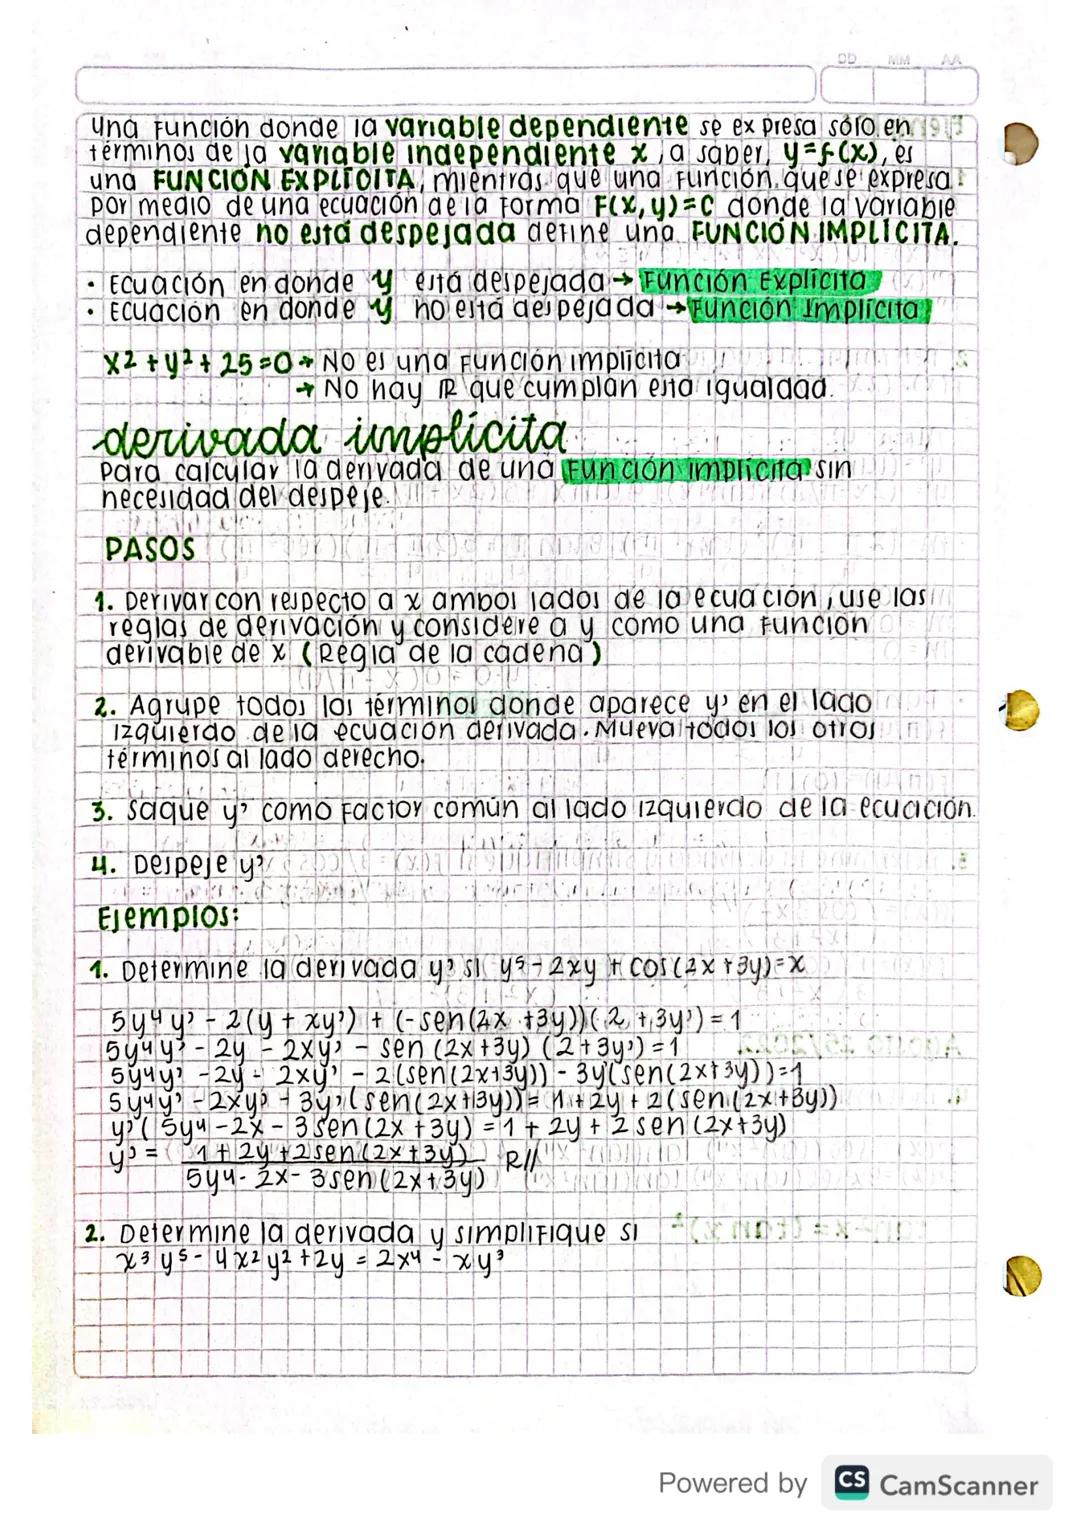 DD MM AA
Una función donde la variable dependiente se expresa sólo en
términos de la variable independiente x, a saber, y=f(x), es
una FUNCIÓN EXPLÍCITA, mientras que una función que se expresa
por medio de una ecuación de la forma F(x,y)=C donde la variable
dependiente no está despejada define una FUNCIÓN IMPLÍCITA.
• Ecuación en donde y está despejada → Función Explícita
• Ecuación en donde y no está despejada → Función Implícita
x² + y² + 25 = 0 → No es una función implícita
→ No hay ℝ que cumplan esta igualdad.
derivada implícita
Para calcular la derivada de una Función implícita sin
necesidad del despeje.
PASOS
1. Derivar con respecto a x ambos lados de la ecuación, use las
reglas de derivación y considere a y como una función
derivable de x (Regla de la cadena)
2. Agrupe todos los términos donde aparece y' en el lado
izquierdo de la ecuación derivada. Mueva todos los otros
términos al lado derecho.
3. Saque y' como factor común al lado izquierdo de la ecuación.
4. Despeje y'
Ejemplos:
1. Determine la derivada y' si y⁵ - 2xy + cos(2x+3y)=x
5y⁴y' - 2(y + xy') + (-sen(2x+3y))(2+3y') = 1
5y⁴y' - 2y - 2xy' - sen(2x+3y)(2+3y') = 1
5y⁴y' - 2y - 2xy' - 2(sen(2x+3y)) - 3y'(sen(2x+3y))=1
5y⁴y' - 2xy' - 3y'(sen(2x+3y)) = 1 + 2y + 2(sen(2x+3y))
y'(5y⁴ - 2x - 3sen(2x+3y) = 1 + 2y + 2sen(2x+3y)
y' = 1 + 2y + 2sen(2x+3y) R//
5y⁴ - 2x - 3sen(2x+3y)
2. Determine la derivada y simplifique si
x³y⁵ - 4x²y² + 2y = 2x⁴ - xy³
Powered by CS CamScanner